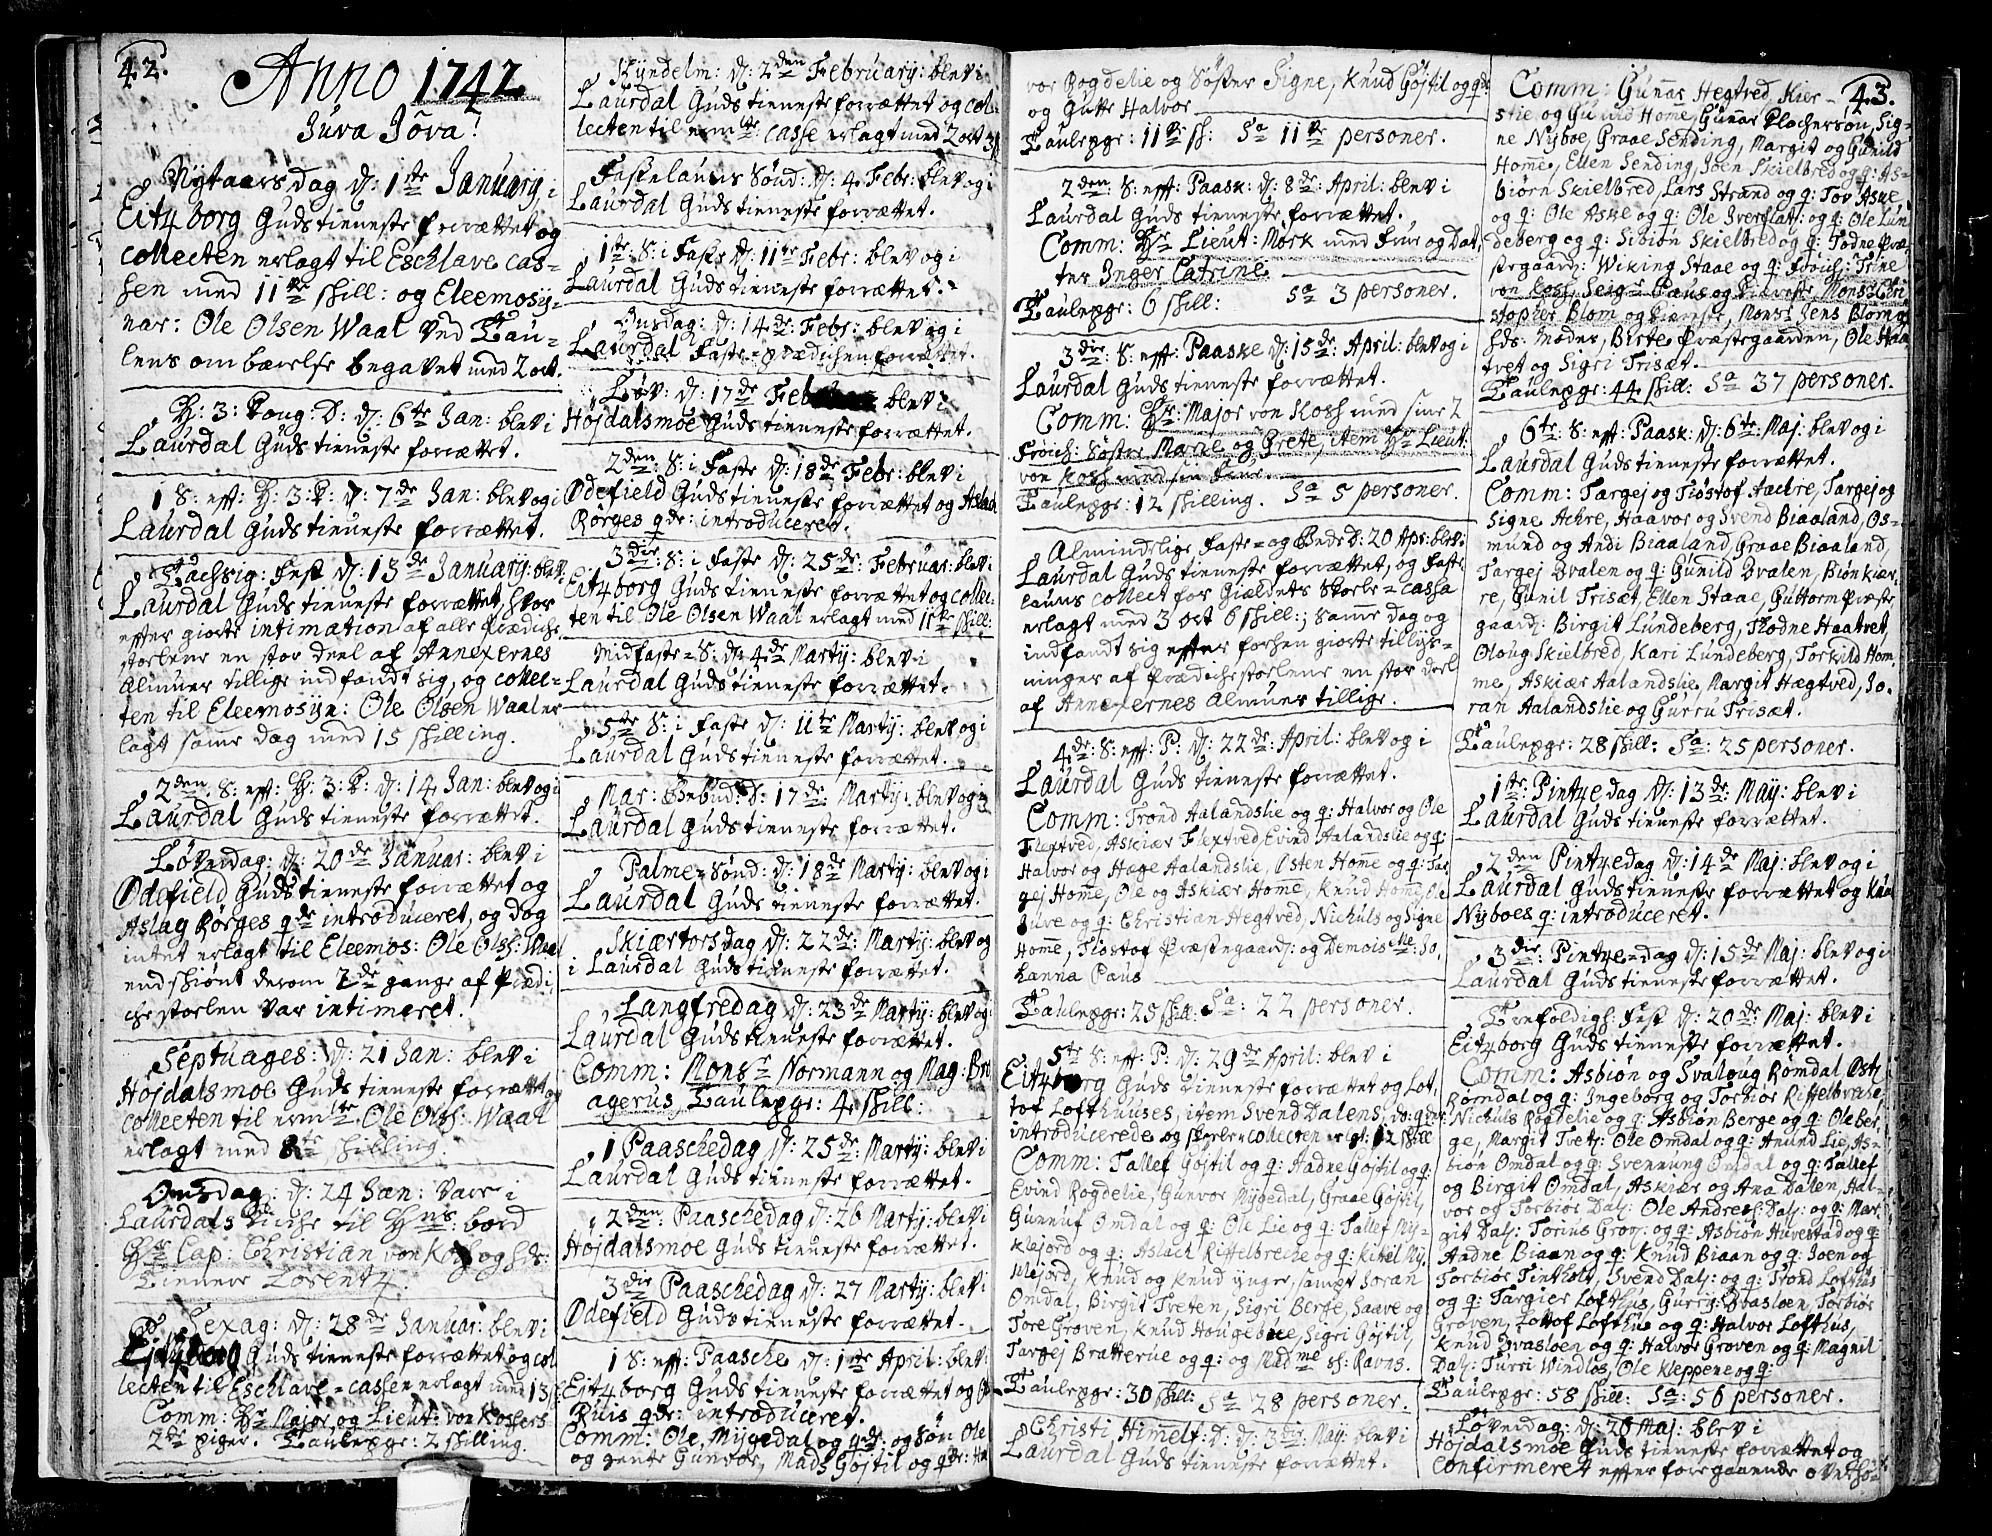 42.
Anno 1742
Juva Jôva!
Nytaarsdag d: 1te January, i
Eitzborg Guds tieneste forrættet og
collecten erlagt til Esclave cas-
sen med 11 skill: og Eleemosy-
nar: Ole Olsen Waal ved Tau-
lens ombærelse begavet med 2 ort.
H: 3: Kong: D: d: 6te Jan: blev i
Laurdal Guds tieneste forrættet.
1 S: eff: H: 3: K: d: 7de Jan: blev og i
Laurdal Guds tieneste forrættet.
Fest d: 13de January: blev i
Laurdal Guds tieneste forrættet, hvor
effter giorte intimation af alle Prædiche
stoelene en stor deel af Annexernes
Almuer tillige indfandt sig, og collec-
ten til Eleemosyn: Ole Olsen Waal er
lagt samme dag med 15 skilling.
2den S: eff: H: 3: K: d: 14 Jan: blev og i
Laurdal Guds tieneste forrættet.
Løverdag: d: 20de Januar: blev i
Ødefield Guds tieneste forrættet og
Aslag Rørges qde introduceret, og dog
intet erlagt til Eleemos: Ole Ols: Waal
endskiønt derom 2de gange af Prædi
chestoelen var intimeret.
Septuages: d: 21 Jan: blev i
Højdalsmoe Guds tieneste forrættet og
collecten til Ole Ols: Waal
erlagt med 8te skilling.
Onsdag: d: 24 Jan: vare i
Laurdals Kirche til Hns: bord
Hr Cap: Christian von Koss og hds:
Tienere Lorentz.
Sexag: d: 28de Januar: blev i
Eitzborg Guds tieneste forrættet og col
lecten til Esclave-cassen erlagt med 13 s
Comm: Hr Major og Lieut: von Kossers
2de piger. Taulepge: 2 skilling.
Kyndelm: d: 2den February: blev i
Laurdal Guds tieneste forrættet og col-
lecten til casse erlagt med 2 ort
Fastelauns Sønd: d: 4 Febr: blev og i
Laurdal Guds tieneste forrættet.
1te S: i Faste d: 11te Febr: blev og i
Laurdal Guds tieneste forrættet.
Onsdag: d: 14de Febr: blev og i
Laurdal Faste-prædichen forrættet.
Løv: d: 17de Feb blev i
Højdalsmoe Guds tieneste forrættet.
2den S: i Faste d: 18de Febr: blev i
Ødefield Guds tieneste forrættet og Aslach
Rørges qde: introduceret.
3die S: i Faste d: 25de Februar: blev i
Eitzborg Guds tieneste forrættet og collec:
ten til Ole Olsen Waal erlagt med 11 skill:
Midfaste-S: d: 4de Martij: blev i
Laurdal Guds tieneste forrættet.
5te S: i Faste d: 11te Martij: blev og i
Laurdal Guds tieneste forrættet.
Mar: Bebud: D: 17de Martij: blev og i
Laurdal Guds tieneste forrættet.
Palme-Sønd: d: 18de Martij: blev og i
Laurdal Guds tieneste forrættet.
Skiærtorsdag d: 22de: Martij: blev og
i Laurdal Guds tieneste forrættet.
Langfredag d: 23de Martij: blev og i
Laurdal Guds tieneste forrættet.
Comm: Monsr Normann og Mag: Br
agerus, Taulepge: 4 skill:
1 Paaschedag d: 25de: Martij: blev i
Laurdal Guds tieneste forrættet.
2den: Paaschedag d: 26 Martij: blev i
Højdalsmoe Guds tieneste forrættet.
3die Paaschedag d: 27 Martij: blev i
Ødefield Guds tieneste forrættet.
1 S: eff: Paasche d: 1te April: blev i
Eitzborg Guds tieneste forrættet og
qde: introduceret.
Comm: Ole Mygedal og qde: og søn Ole
og gente Gunvor, Mads Gøjtil og qde:
vor Rogdelie og Søster Signe, Knud Gøjtil og qde
og Gutte Halvor
Taulepge: 11 sk: Sa 11 personer.
2den: S: eff: Paask: d: 8de: April: blev i
Laurdal Guds tieneste forrættet.
Comm: Hr Lieut: Mørk med Frue og Dat-
ter Inger Catrine
Taulepge: 6 skill: Sa 3 personer.
3die: S: eff: Paaske d: 15de: April: blev og i
Laurdal Guds tieneste forrættet.
Comm: Hr: Major von Koss med sine 2
Frøich: Søstre Marie og Grete, item Hr Lieut:
von Koss med sin Frue.
Taulepge: 12 skilling. Sa 5 personer.
Almindelige Faste- og Bede D: 20 Apr: blev i
Laurdal Guds tieneste forrættet, og Faste
launs collect for Giældets Skole-cassa
erlagt med 3 ort 6 skill:; samme dag og
indfandt sig effter forhen giorte tillys-
ninger af Prædichestoelene en stor deel
af Annexernes Almuer tillige.
4de: S: eff: P: d: 22de: April: blev og i
Laurdal Guds tieneste forrættet.
Comm: Trond Aalandslie og q: Halvor og Ole
Flextved, Askiær Flextved, Evind Aalandslie og q:
Halvor og Hage Aalandslie, Østen Home og q: Tar
gej Home, Ole og Askiær Home, Knud Home, Ole
Juve og q: Christian Hegtved, Nichuls og Signe
Home, Tiostof Præstegaard: og Demoiselle Jo
hanna Paus
Taulepge: 25 skill: Sa: 22 personer.
5te S: eff: P: d: 29de April: blev i
Eitzborg Guds tieneste forrættet og Lot
tof Lofthuuses, item Svend Dalens
introducerede og skole-collecten erlgt: 12 skill
Comm: Tallef Gøjtil og q: Aadne Gøjtil og q:
Evind Rogdelie, Gunvor Mygedal, Graae Gøjtil,
Gunnuf Omdal og q: Ole Lie og q: Tallef Ny-
klejord og q: Aslach Riffelbreche og q: Kitel Ny
klejord, Knud og Knud ynger, sampt Joran
Omdal, Birgit Tveten, Sigri Berge, Saave og
Tore Groven, Knud Hougebøe, Sigri Gøjtil,
Targej Bratterue og q: og Madme Sl: Ravns.
Taulepge: 30 skill: Sa 28 personer.
Christi Himelf: D: d: 3die Maij: blev i
Laurdal Guds tieneste forrættet.
43.
Comm: Gunar Hegtved Kier-
stie og Gunild Home, Gunar Sig-
ne Nyboe, Graae Sending, Margit og Gunild
Home, Ellen Sending, Joen Skielbred og q: As-
biørn Skielbred, Lars Strand og q: Tov Aske,
og q: Ole Aske og q: Ole Sverslatt: og q: Ole Lun
deberg og q: Sibiøn Skielbred og q: Todne Præ-
stegaard: Wiking Staae og q: Frøich: Trine
von Koss, Seigr Paus og Kiæreste, Monsr Chri
stopher Blom og Kiæreste, Monsr Jens Blom og
hds: Moder, Birte Præstegaarden, Ole Haa
tvet og Sigri Trisæt.
Taulepge: 44 skill: Sa 37 personer.
6te: S: eff: Paask: d: 6te: Maj: blev og i
Laurdal Guds tieneste forrættet.
Comm: Targej og Tiostof Aachre, Targej og
Signe Achre, Haavor og Svend Biaaland, Os-
mund og Andi Biaaland, Graae Biaaland,
Targej Dvalen og q: Gunild Dvalen, Biøn Kiær
re, Gunil Trisæt, Ellen Staae, Guttorm Præste
gaard: Birgit Lundeberg, Todne Haatvet,
Oloug Skielbred, Kari Lundeberg, Torkild Hom-
me, Askiær Aalandslie, Margit Hægtved, Jo-
ran Aalandslie og Gurru Trisæt.
Taulepge: 28 skill: Sa: 25 personer.
1te: Pintzedag d: 13de: Maij: blev i
Laurdal Guds tieneste forrættet.
2den Pintzedag d: 14de Maj: blev og i
Laurdal Guds tieneste forrættet og Knud
Nyboes q: introduceret.
3die: Pintze-dag d: 15de Maj: blev og i
Laurdal Guds tieneste forrættet.
Trefoldigh: Fest d: 20de: Maj: blev i
Eitzborg Guds tieneste forrættet.
Comm: Asbiøn og Svaloug Rømdal
Rømdal og q: Ingeborg og Torbiør Riffelbreche,
Nichuls Rogdelie og q: Asbiøn Berge og q: Ole Ber,
ge, Margit Tvet: Ole Omdal og q: Anund Lie, As-
biøn Omdal og q: Svennung Omdal og q: Tallef
og Birgit Omdal, Askiær og Ana Dalen, Hal-
vor og Torbiør Dal: Ole Andres: Dal: og q: Mar,
git Dal: Torius Grov: og q: Asbiøn Huvestad og q:
Aadne Biaan og q: Knud Biaan og q: Joen og
Torbiør Tintholt, Svend Dal: og q: Trond Lofthus
og q: Targier Lofthus, Gurri Dvasloen, Torbiør
Groven, Lottof Lofthus og q: Halvor Lofthus,
Knud Dvasloen og q: Halvor Groven og q: Magnil
Dal: Turri Windlos, Ole Kleppene og q:
Taulepge: 58 skill: Sa: 56 personer.
Løverdag: d: 26 Maj: blev i
Højdalsmoe Guds tieneste forrættet og
confirmeret effter foregaaende overhø-